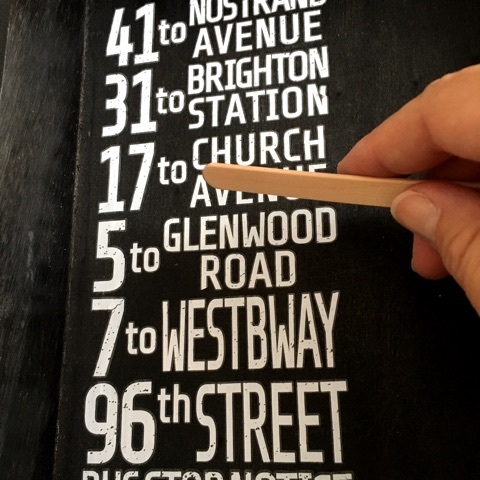 41 to NOSTRAND
AVENUE
31 to BRIGHTON
STATION
17 to CHURCH
AVENUE
5 to GLENWOOD
ROAD
7 to WESTBWAY
96th STREET
BUS STOP NOTICE